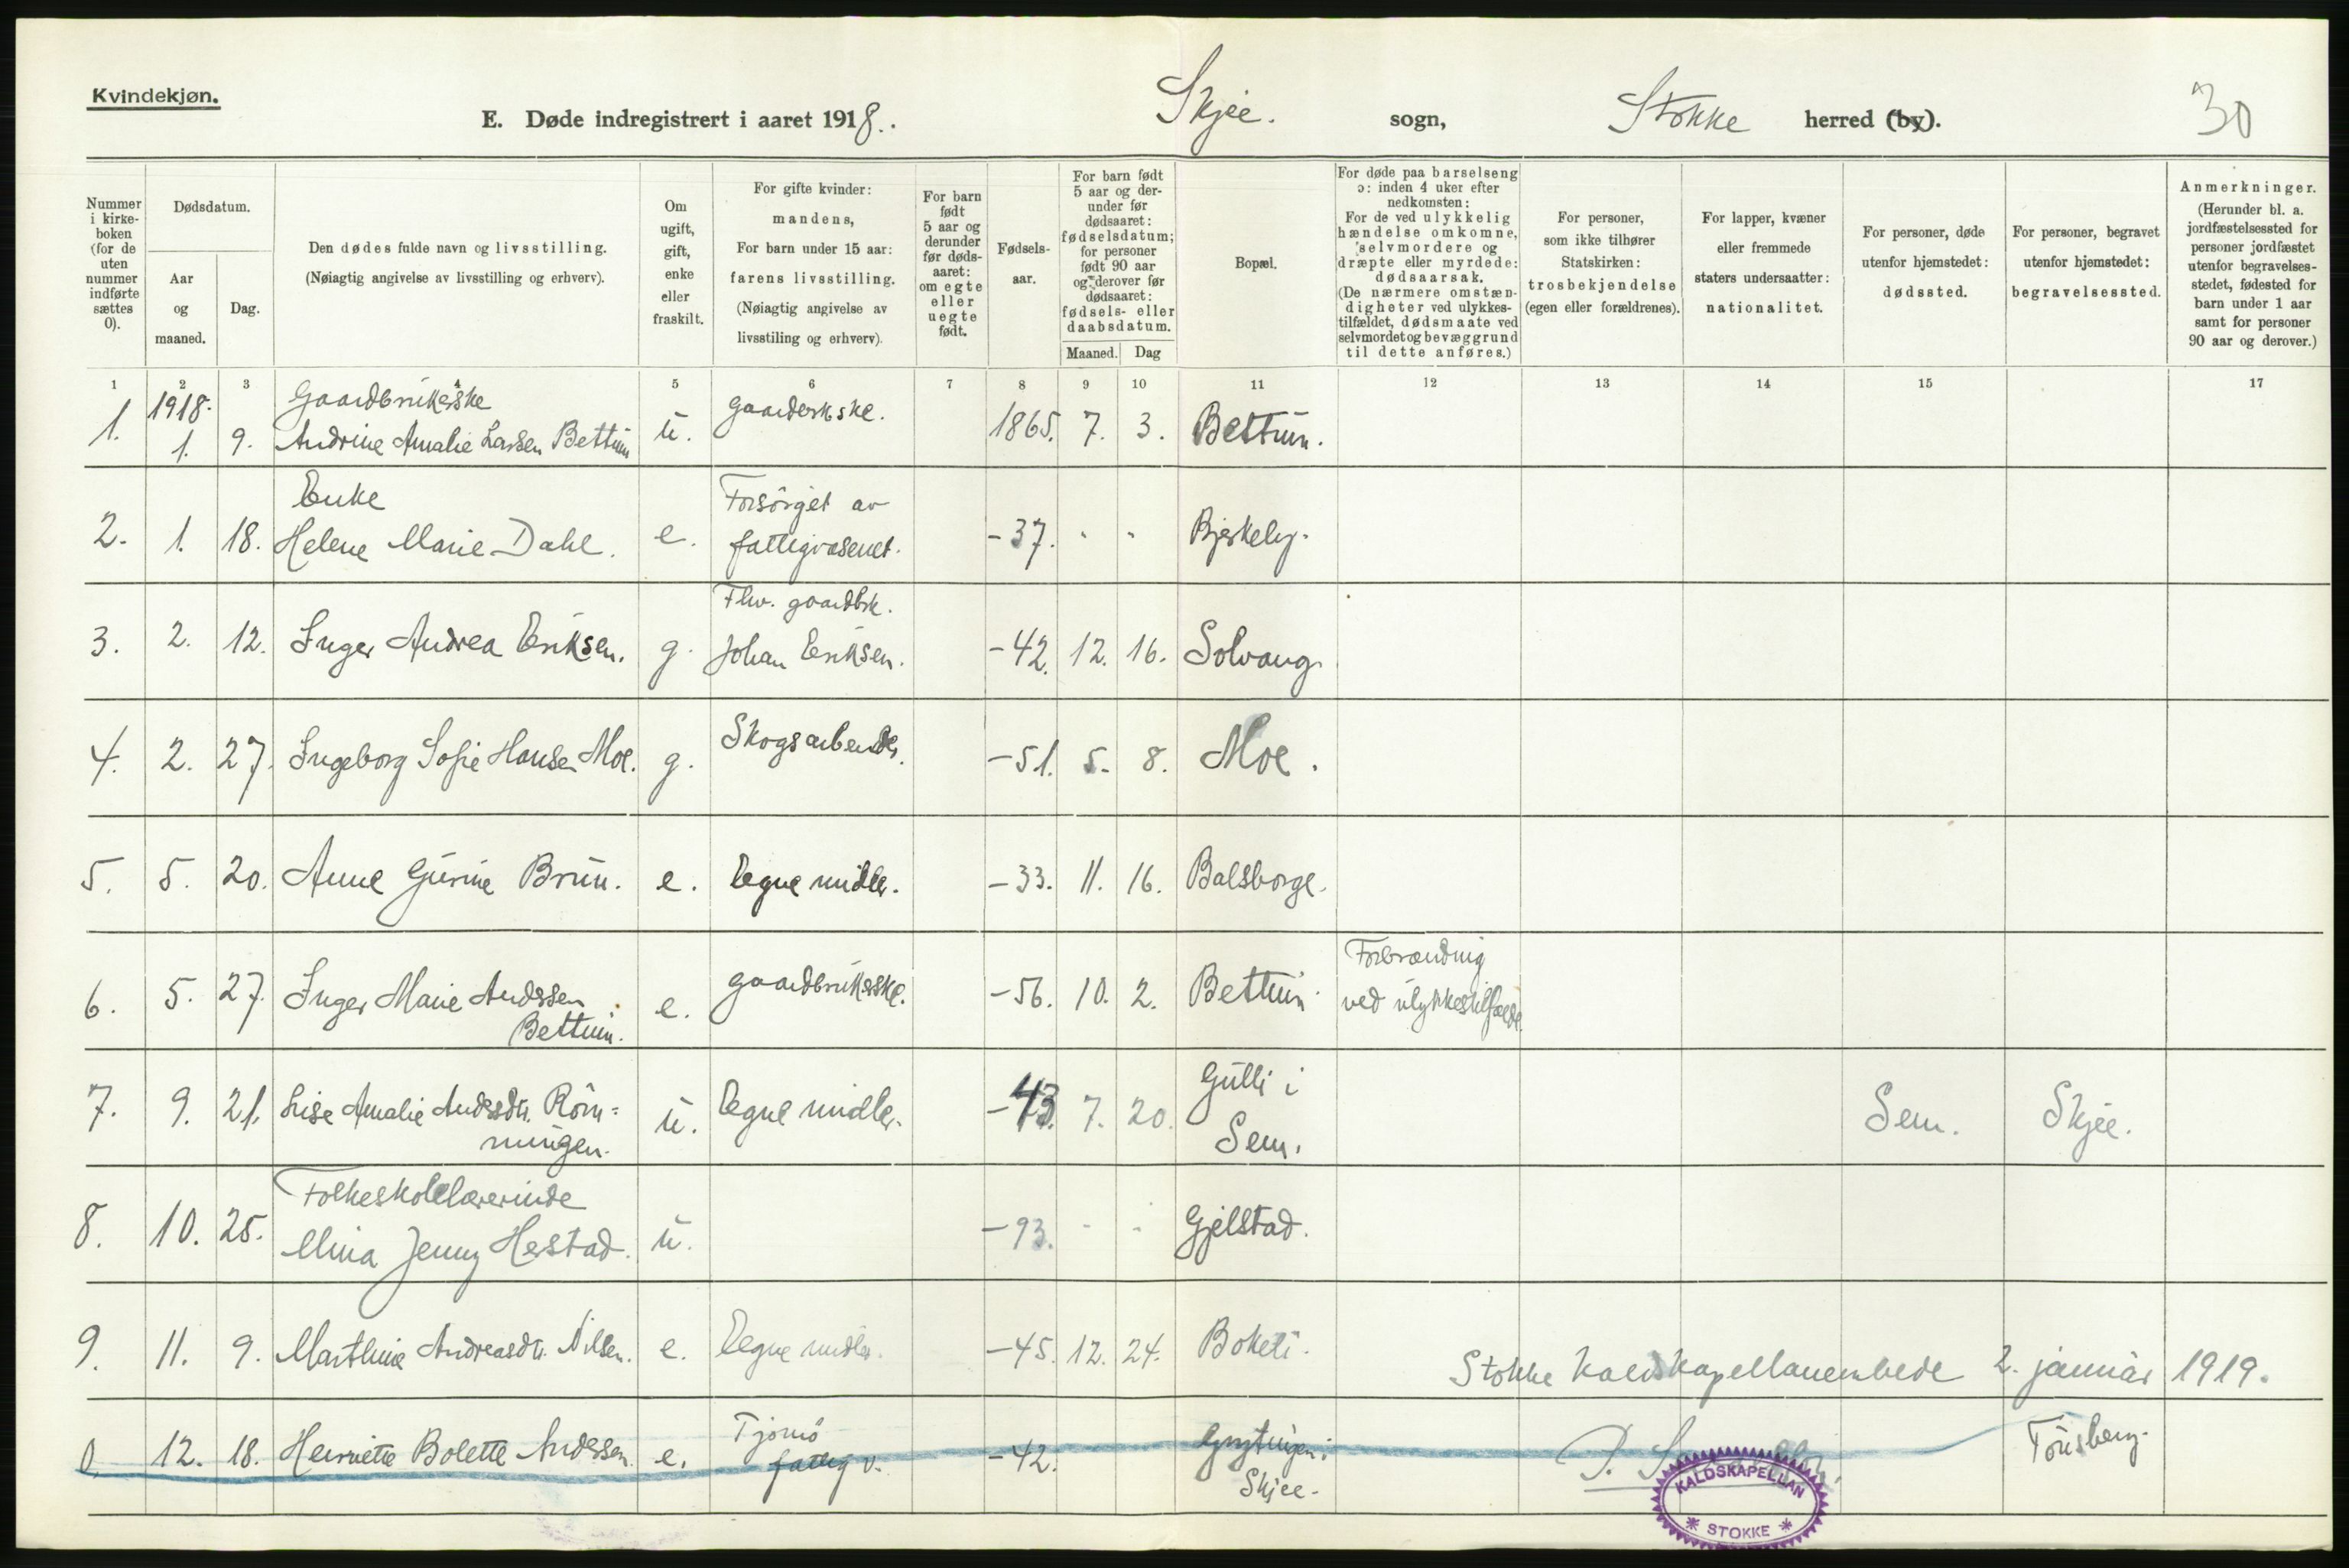 Kvindekjøn.
E. Døde indregistrert i aaret 1918.
Skjee. sogn,
Stokke herred (by).
30
Nummer
i kirke-
boken
(for de
uten
nummer
indførte
sættes
0).
Dødsdatum.
Aar
og
maaned.
Dag.
Den dødes fulde navn og livsstilling.
(Nøiagtig angivelse av livsstilling og erhverv).
Om
ugift,
gift,
enke
eller
fraskilt.
For gifte kvinder:
mandens,
For barn under 15 aar:
farens livsstilling.
(Nøiagtig angivelse av
livsstiling og erhverv).
For barn
født
5 aar og
derunder
før døds-
aaret:
om egte
eller
uegte
født.
Fødsels-
aar.
For barn født
5 aar og der-
under før
dødsaaret:
fødselsdatum;
for personer
født 90 aar
og derover før
dødsaaret:
fødsels- eller
daabsdatum.
Maaned. Dag
Bopæl.
For døde paa barselseng
ɔ: inden 4 uker efter
nedkomsten:
For de ved ulykkelig
hændelse omkomne,
selvmordere og
dræpte eller myrdede:
dødsaarsak.
(De nærmere omstæn-
digheter ved ulykkes-
tilfældet, dødsmaate ved
selvmordet og bevæggrund
til dette anføres.)
For personer,
som ikke tilhører
Statskirken:
trosbekjendelse
(egen eller forældrenes).
For lapper, kvæner
eller fremmede
staters undersaatter:
nationalitet.
For personer, døde
utenfor hjemstedet:
dødssted.
For personer, begravet
utenfor hjemstedet:
begravelsessted.
Anmerkninger.
(Herunder bl. a.
jordfæstelsessted for
personer jordfæstet
utenfor begravelses-
stedet, fødested for
barn under 1 aar
samt for personer
90 aar og derover.)
1 2 3 4 5 6 7 8 9 10 11 12 13 14 15 17
1918. Gaardbrukerske gaarderkske.
1. 1. 9. Andrine Amalie Larsen Bettum u. 1865. 7. 3. Bettum.
Enke Forsörget av
2. 1. 18. Helene Marie Dahl. e. fattigvæsenet. -37. - - Bjerkely.
Fhv. gaardbrk.
3. 2. 12. Inger Andrea Eriksen. g. Johan Eriksen. -42. 12. 16. Solvang.
4. 2. 27. Ingeborg Sofie Hansen Moe. g. Skogsarbeider. -51. 5. 8. Moe.
5. 5. 20. Anne Gurine Brun. e. Egne midler. -33. 11. 16. Balsborge.
Forbrænding
6. 5. 27. Inger Marie Anderssen e. gaardbrukerske. -56. 10. 2. Bettum ved ulykkestilfælde.
Bettum.
7. 9. 21. Lise Amalie Andersdtr. Röm= u. Egne midler. -43. 7. 20. Gulli i Sem. Skjee.
mingen. Sem.
Folkeskolelærerinde
8. 10. 25. Mina Jenny Herstad. u. -93. - - Gjelstad.
9. 11. 9. Marthine Andreasdtr. Nilsen. e. Egne midler. -45. 12. 24. Bokeli.
Stokke Kaldskapellanembede 2. januar 1919.
0. 12. 18. Henriette Bolette Anderssen. e. Tjømö -42. Tönsberg.
fattig v. Skjee.
KALDSKAPELLAN
* STOKKE *